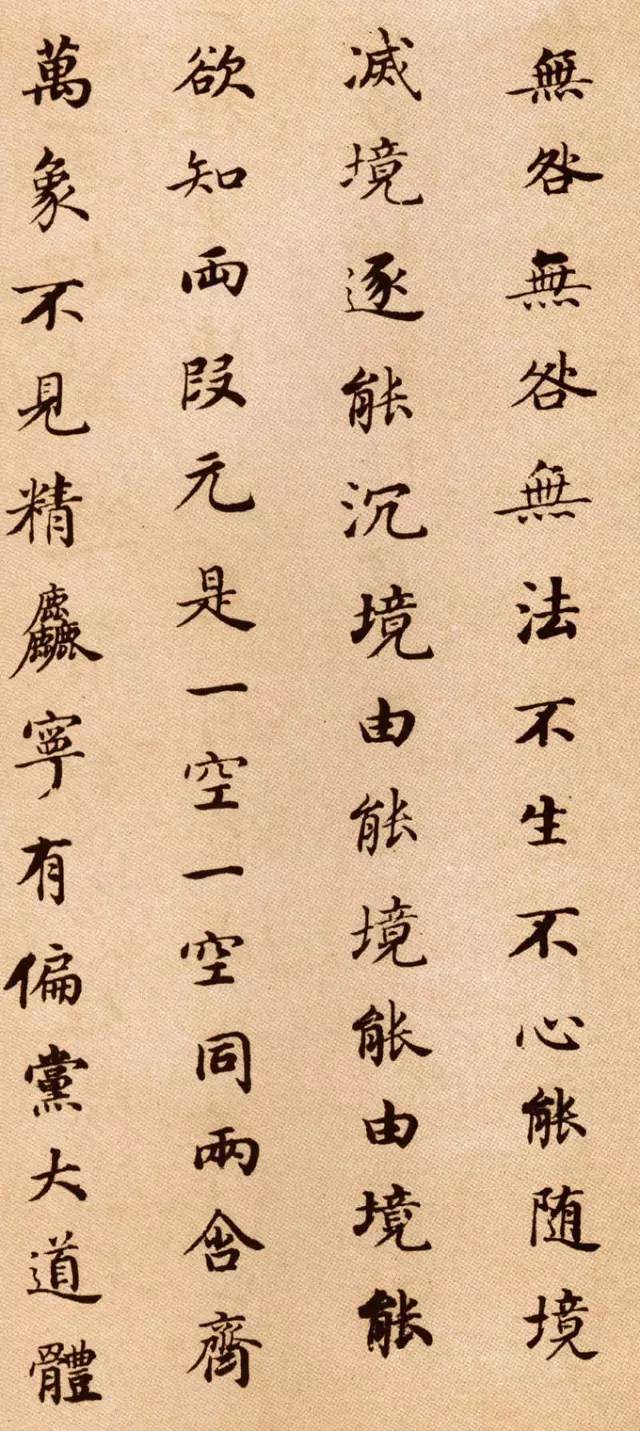 無咎無咎無法不生不心能随境
滅境逐能沉境由能境能由境能
欲知兩段元是一空一空同兩含齊
萬象不見精麤寧有偏黨大道體